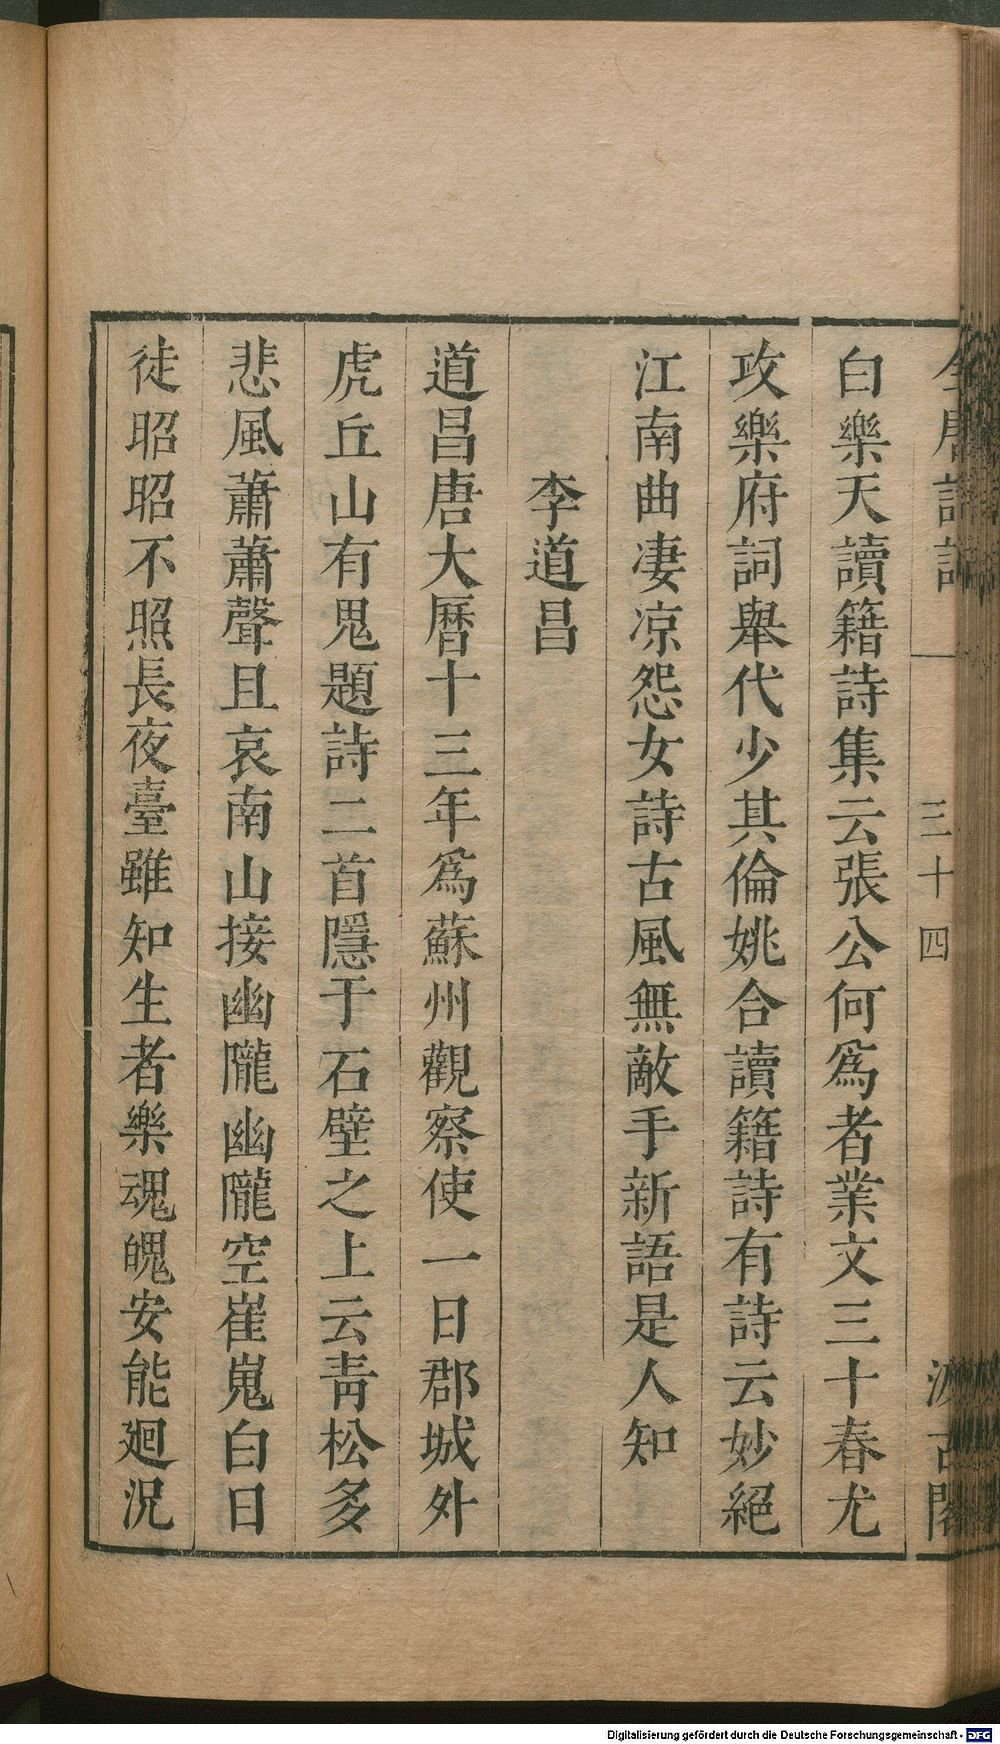 全唐詩話 三十四 汲古閣
白樂天讀籍詩集云張公何爲者業文三十春尤
攻樂府詞舉代少其倫姚合讀籍詩有詩云妙絕
江南曲凄凉怨女詩古風無敵手新語是人知
李道昌
道昌唐大曆十三年爲蘇州觀察使一日郡城外
虎丘山有鬼題詩二首隱于石壁之上云靑松多
悲風蕭蕭聲且哀南山接幽隴幽隴空崔嵬白日
徒昭昭不照長夜臺雖知生者樂魂魄安能廻況
Digitalisierung gefördert durch die Deutsche Forschungsgemeinschaft - DFG